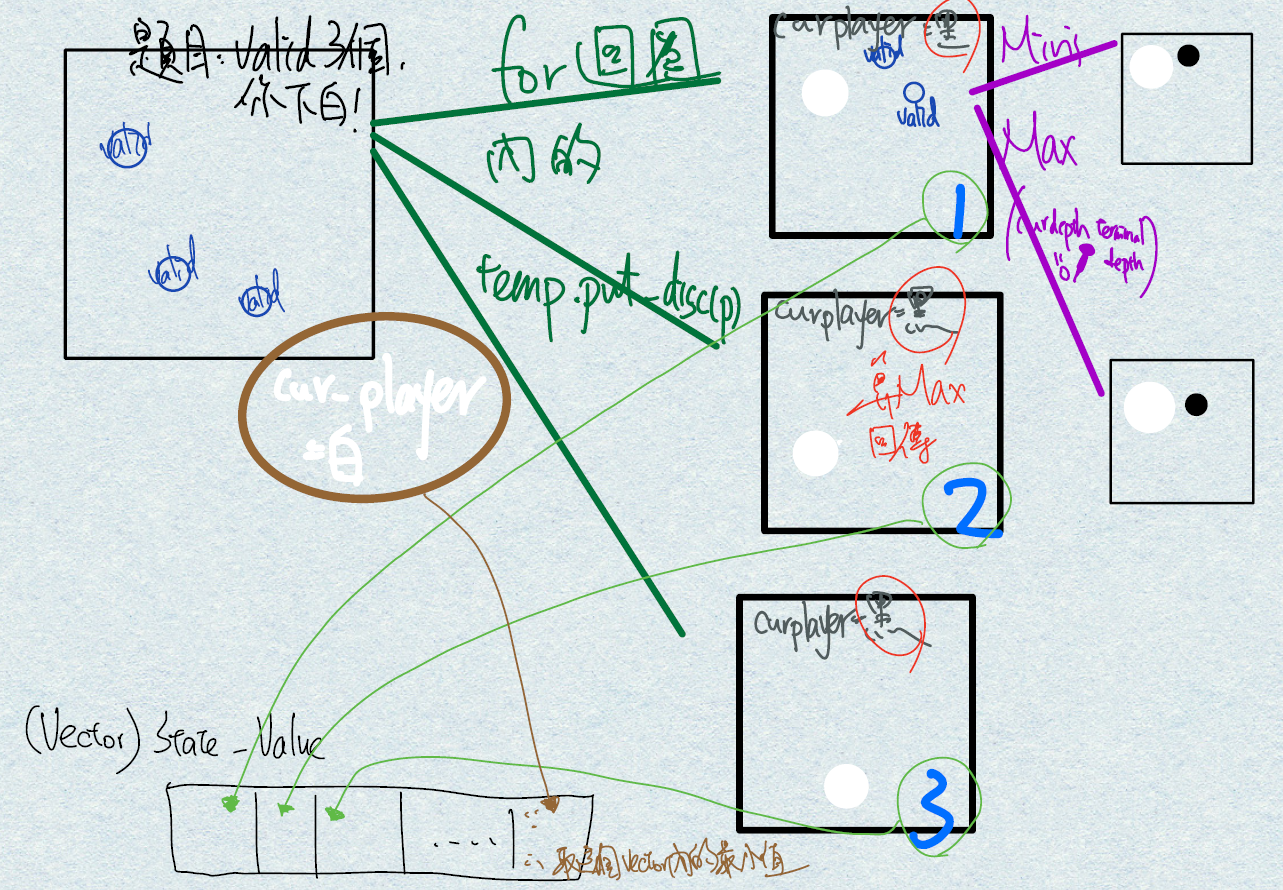 題目:valid 3個,
你下白!
valid
valid
valid
cur_player
=白
for 回圈
內的
temp.put_disc(p)
curplayer=黑
valid
valid
1
Mini
Max
(curdepth terminal
depth)
curplayer=黑
算Max
回傳
2
curplayer=黑
3
(Vector) State_Value
.....
∴取這個vector內的最小值